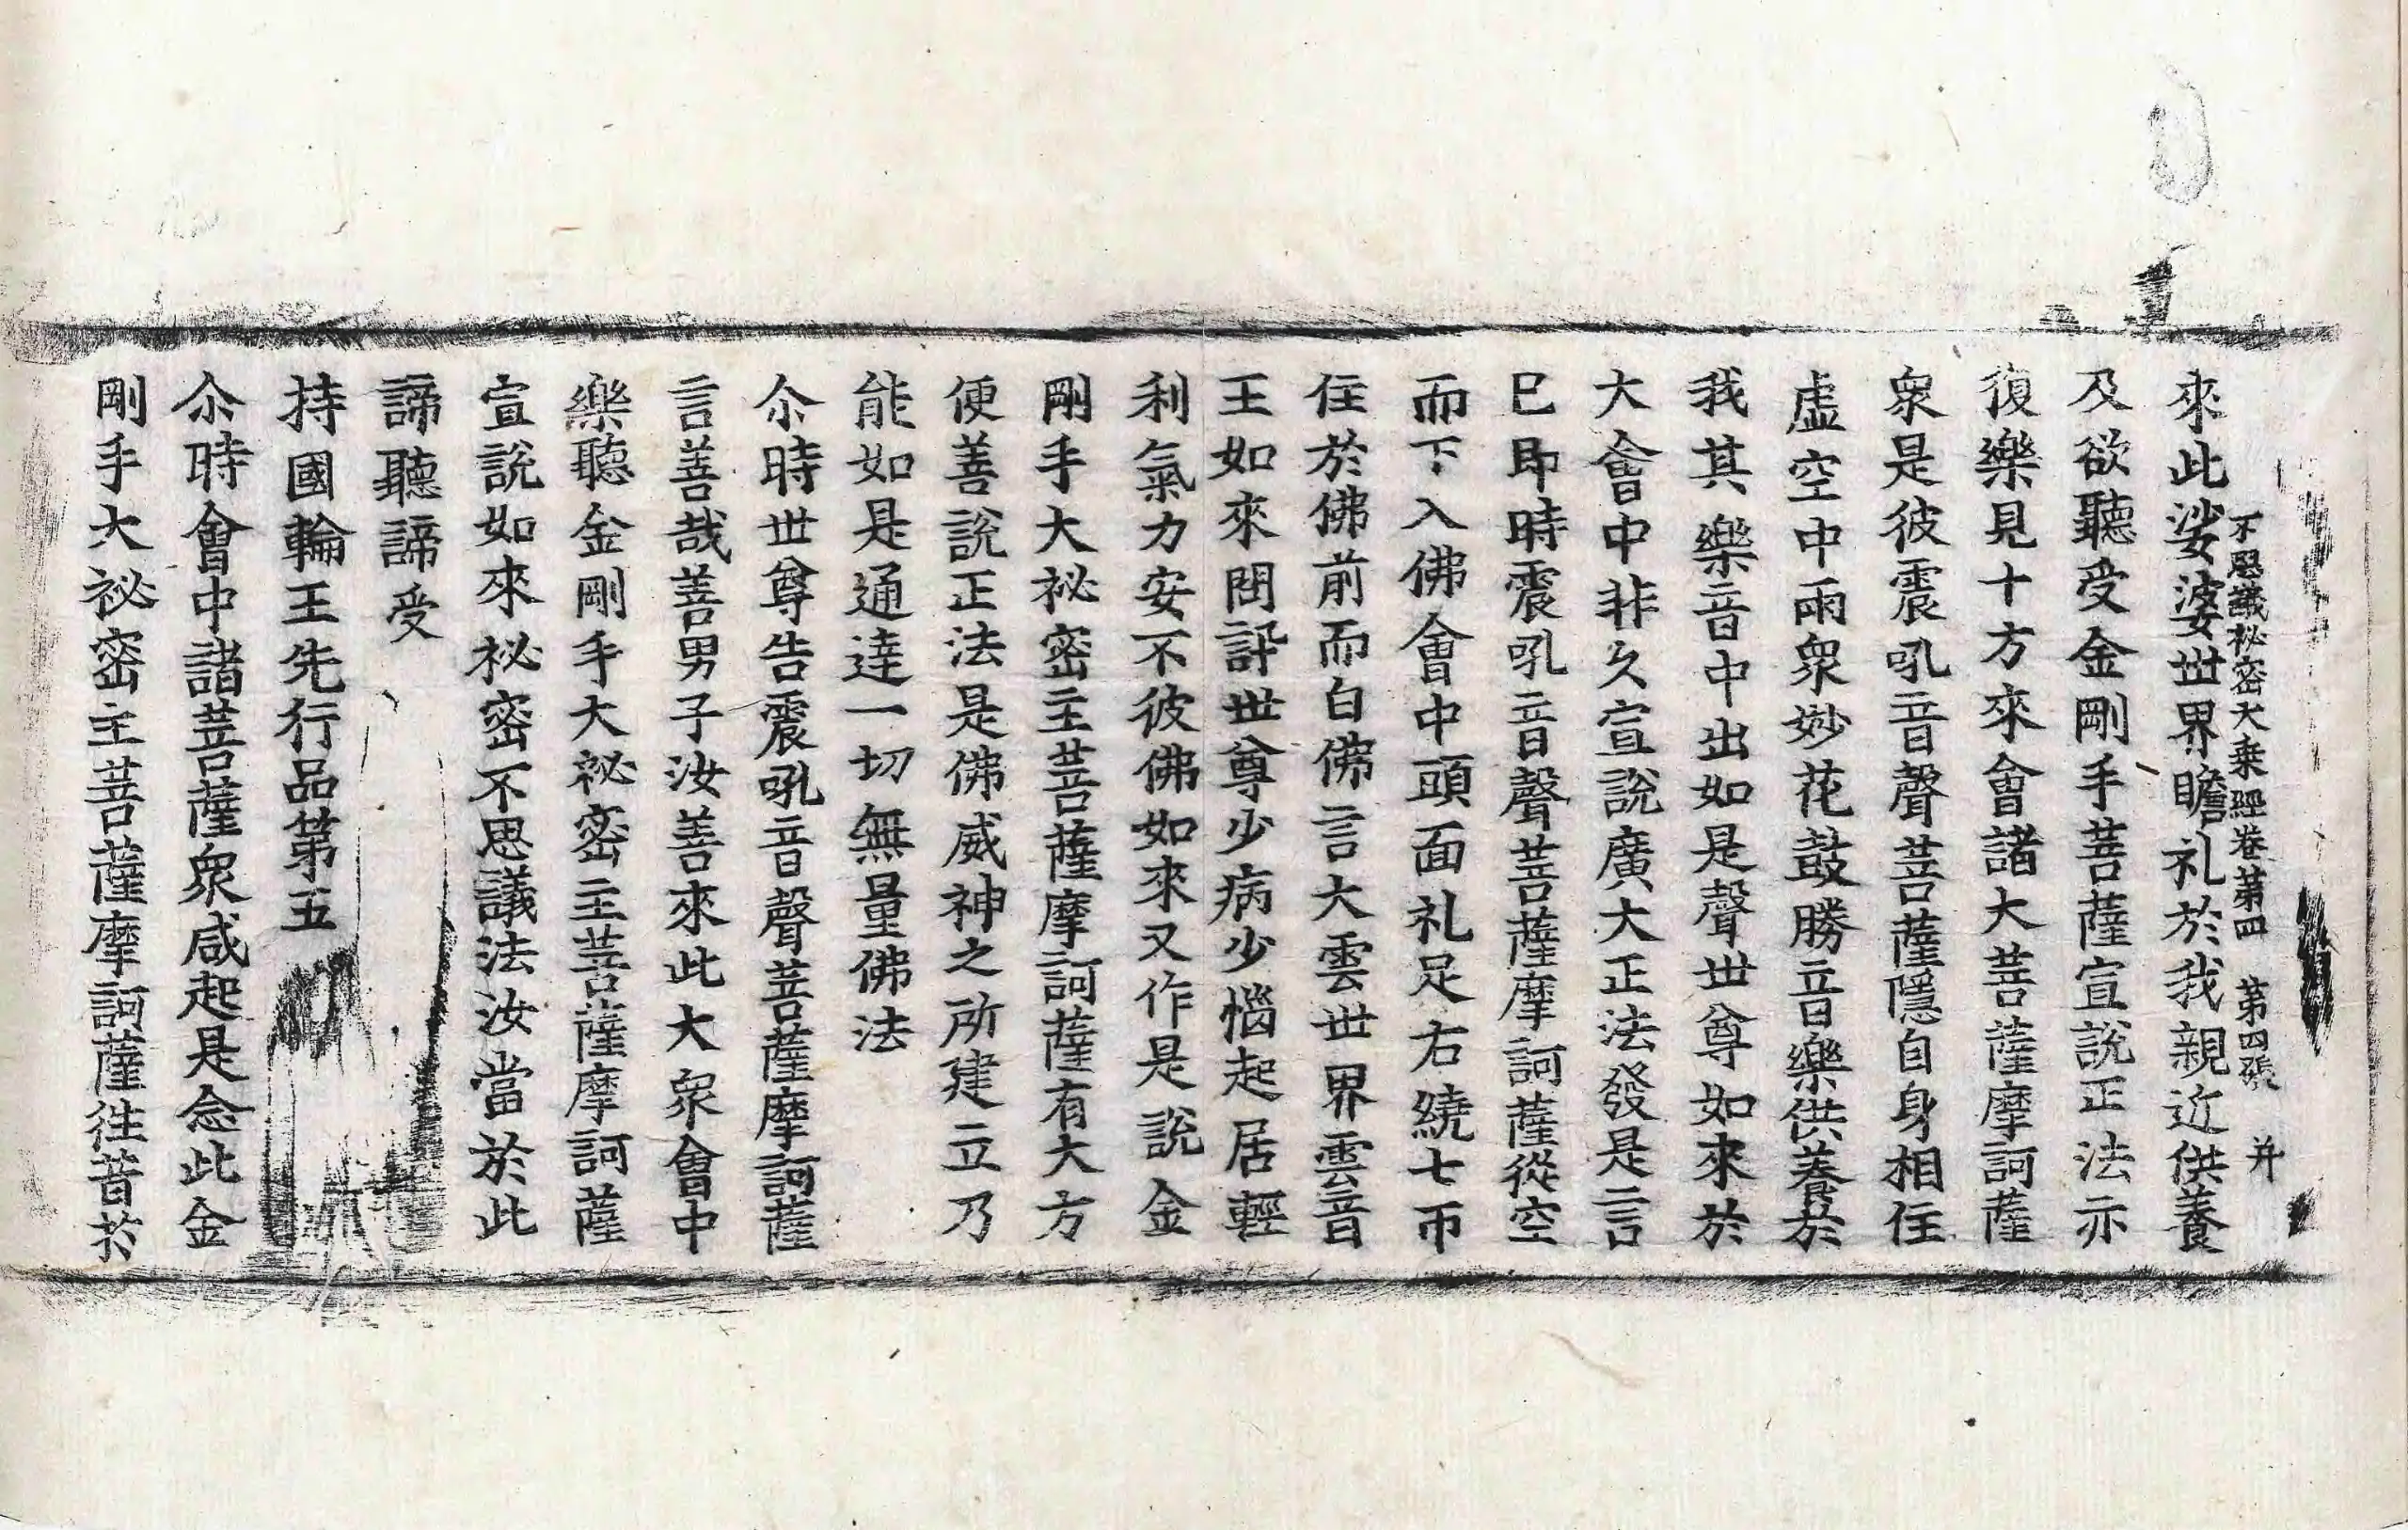 不思議祕密大乗經卷第四 第四張 并
來此娑婆世界瞻礼於我親近供養
及欲聽受金剛手菩薩宣說正法亦
復樂見十方來會諸大菩薩摩訶薩
衆是彼震吼音聲菩薩隱自身相住
虛空中雨衆妙花鼓勝音樂供養於
我其樂音中出如是聲世尊如來於
大會中非久宣說廣大正法發是言
已即時震吼音聲菩薩摩訶薩從空
而下入佛會中頭面礼足右繞七帀
住於佛前而白佛言大雲世界雲音
王如來問訊世尊少病少惱起居輕
利氣力安不彼佛如來又作是說金
剛手大祕密主菩薩摩訶薩有大方
便善說正法是佛威神之所建立乃
能如是通達一切無量佛法
尒時世尊告震吼音聲菩薩摩訶薩
言善哉善男子汝善來此大衆會中
樂聽金剛手大祕密主菩薩摩訶薩
宣說如來祕密不思議法汝當於此
諦聽諦受
持國輪王先行品第五
尒時會中諸菩薩衆咸起是念此金
剛手大祕密主菩薩摩訶薩徃昔於